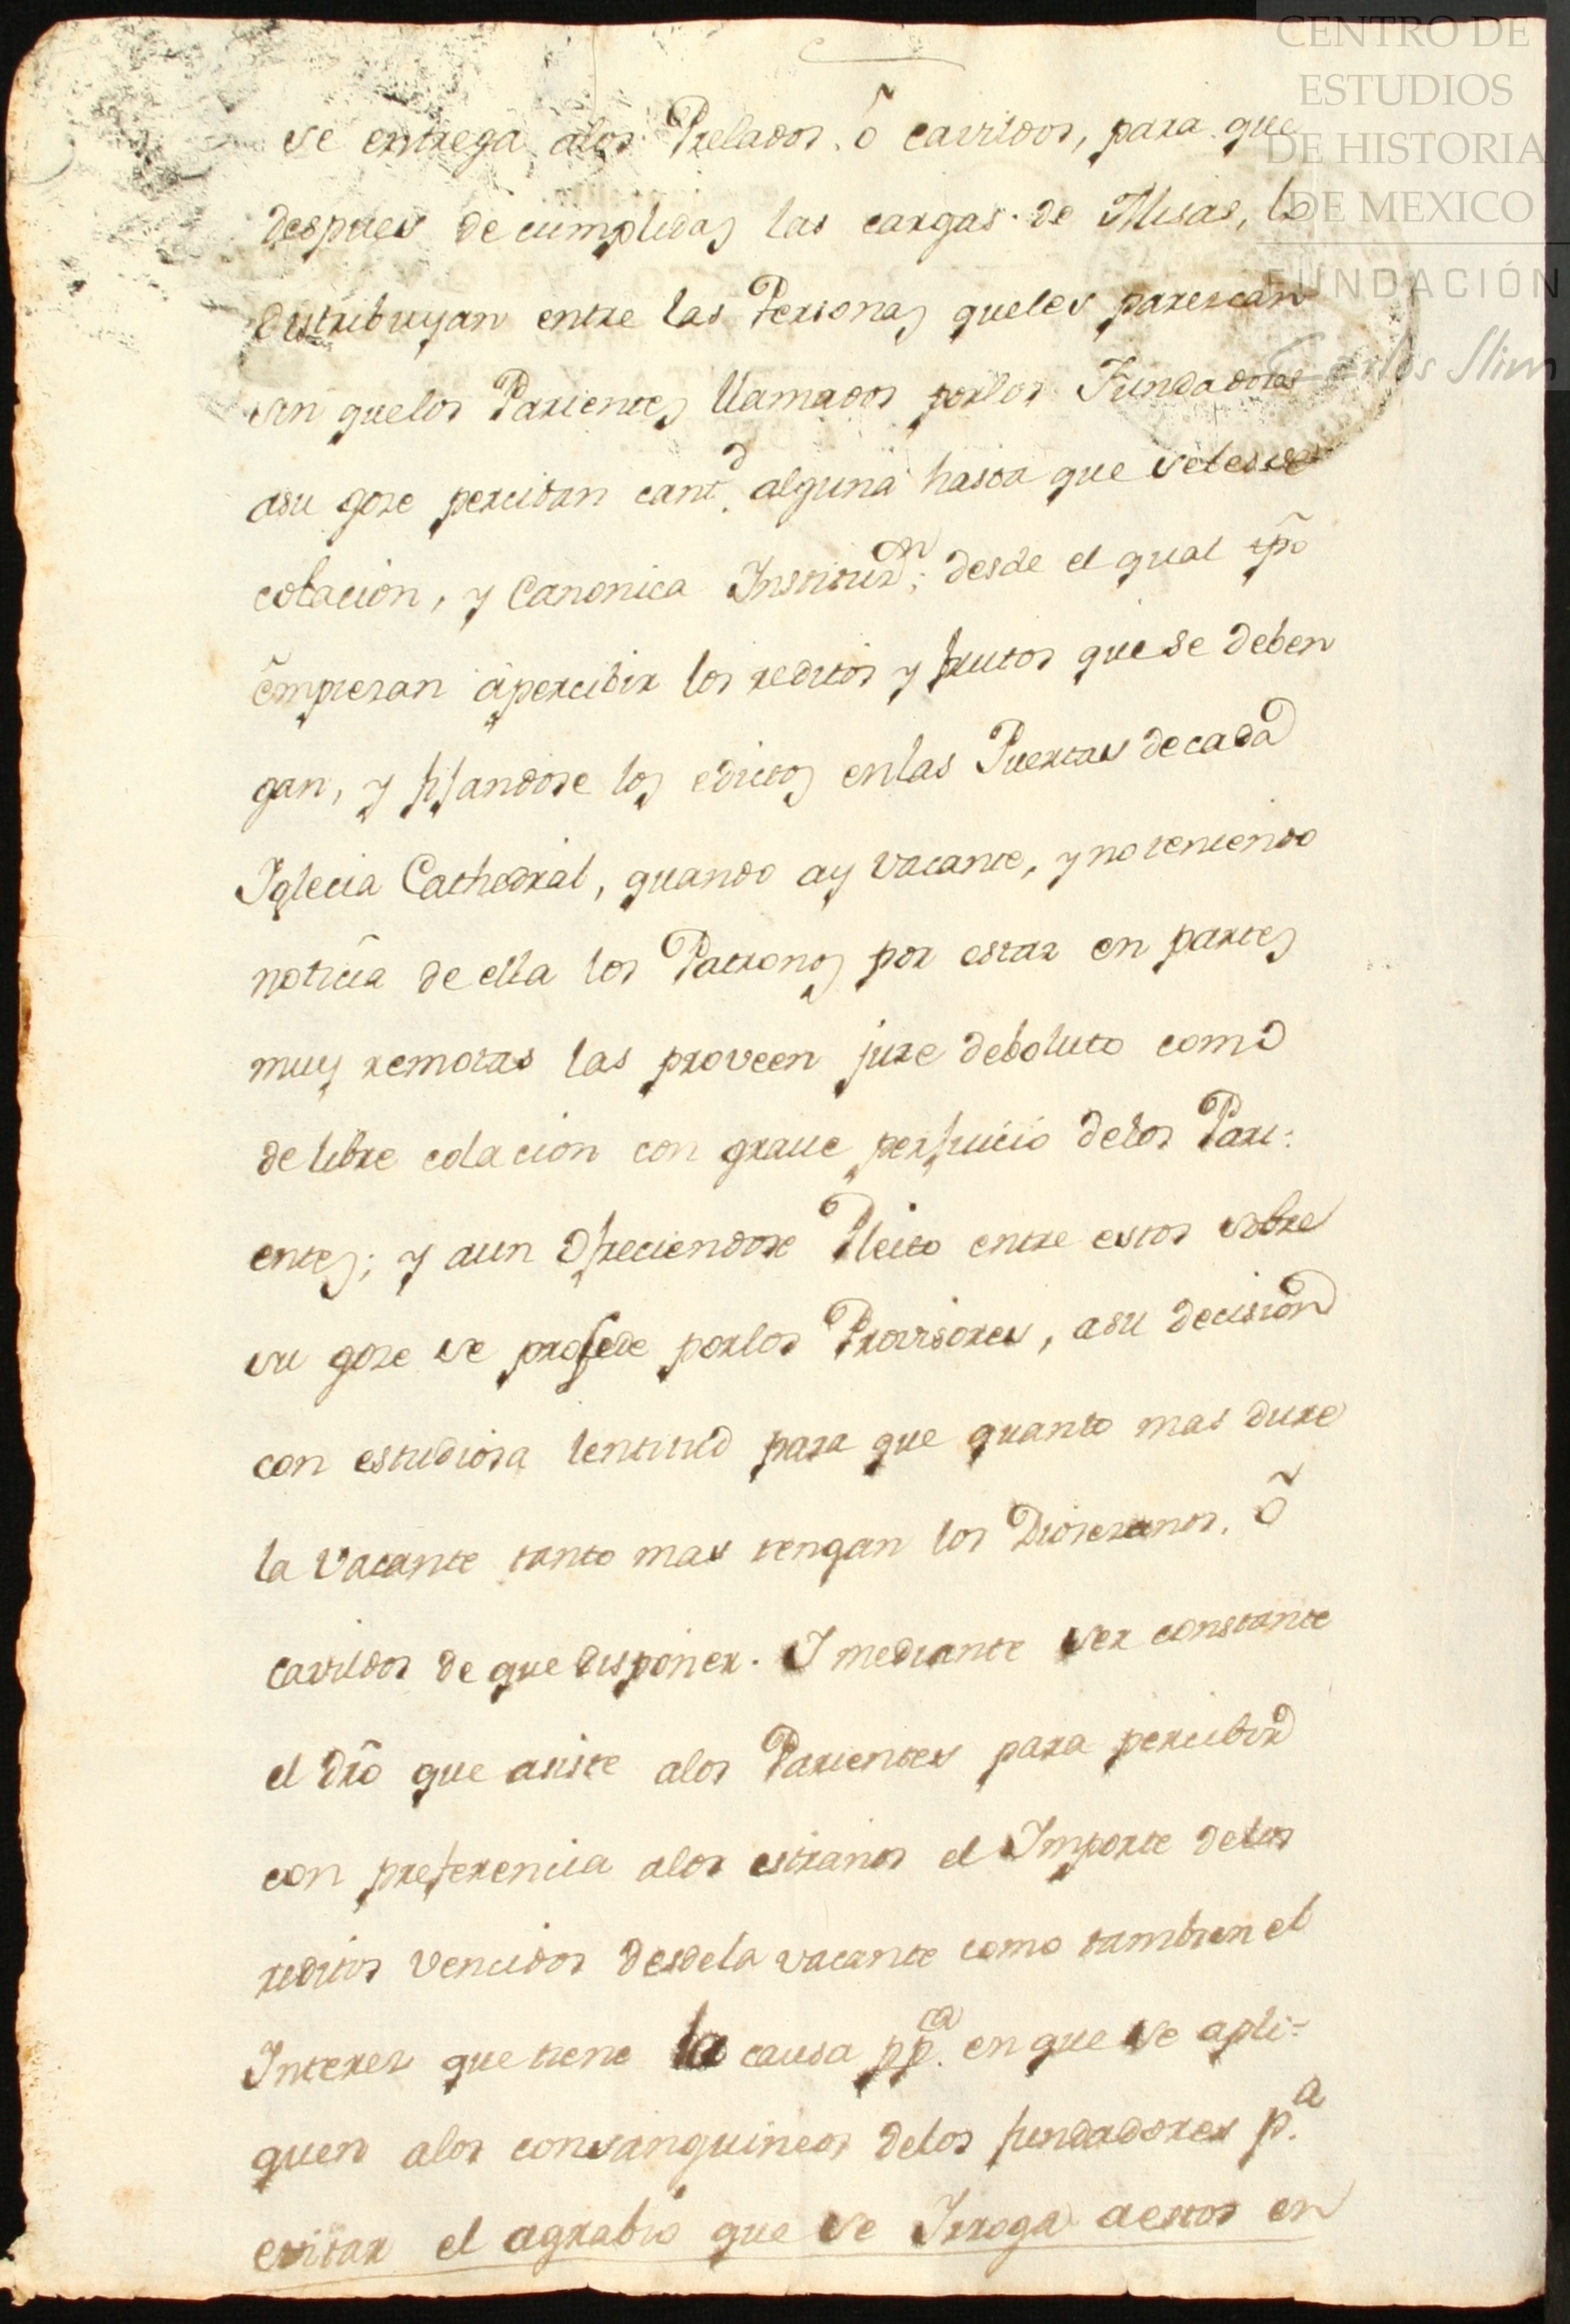 CENTRO DE
ESTUDIOS
DE HISTORIA
DE MEXICO
FUNDACIÓN
Carlos Slim
se entrega alos Prelados. õ cavildos, para que
despues de cumplidas las cargas de Misas, lo
distribuyan entre las Personas queles parescan
sin quelos Parientes llamados porlos Fundadores
asu gose percivan cantd. alguna hasta que seles de
colacion, y Canonica Instituzn; desde el qual tpõ
empiezan apercibir los reditos y frutos que se deben
gan, y fijandose los edictos enlas Puertas decada
Iglecia Cathedral, quando ay vacante, y no teniendo
noticia de ella los Patronos por estar en partes
muy remotas las proveen jure deboluto como
de libre colacion con graue perjuicio delos Pari-
entes; y aun Ofreciendose Pleito entre estos sobre
su gose se prosede porlos Provisores, asu decision
con estudiosa lentitud para que quanto mas dure
la Vacante tanto mas tengan los Diosesanos. õ
cavildos de que disponer. I mediante ser constante
el dro que asiste alos Parientes para percibir
con preferencia alos estranos el Importe delos
reditos vencidos desdela vacante como tambien el
Interes que tiene la causa ppca. en que se apli-
quen alos consanguineos delos fundadores pa.
evitar el agrabio que se Irroga aestos en